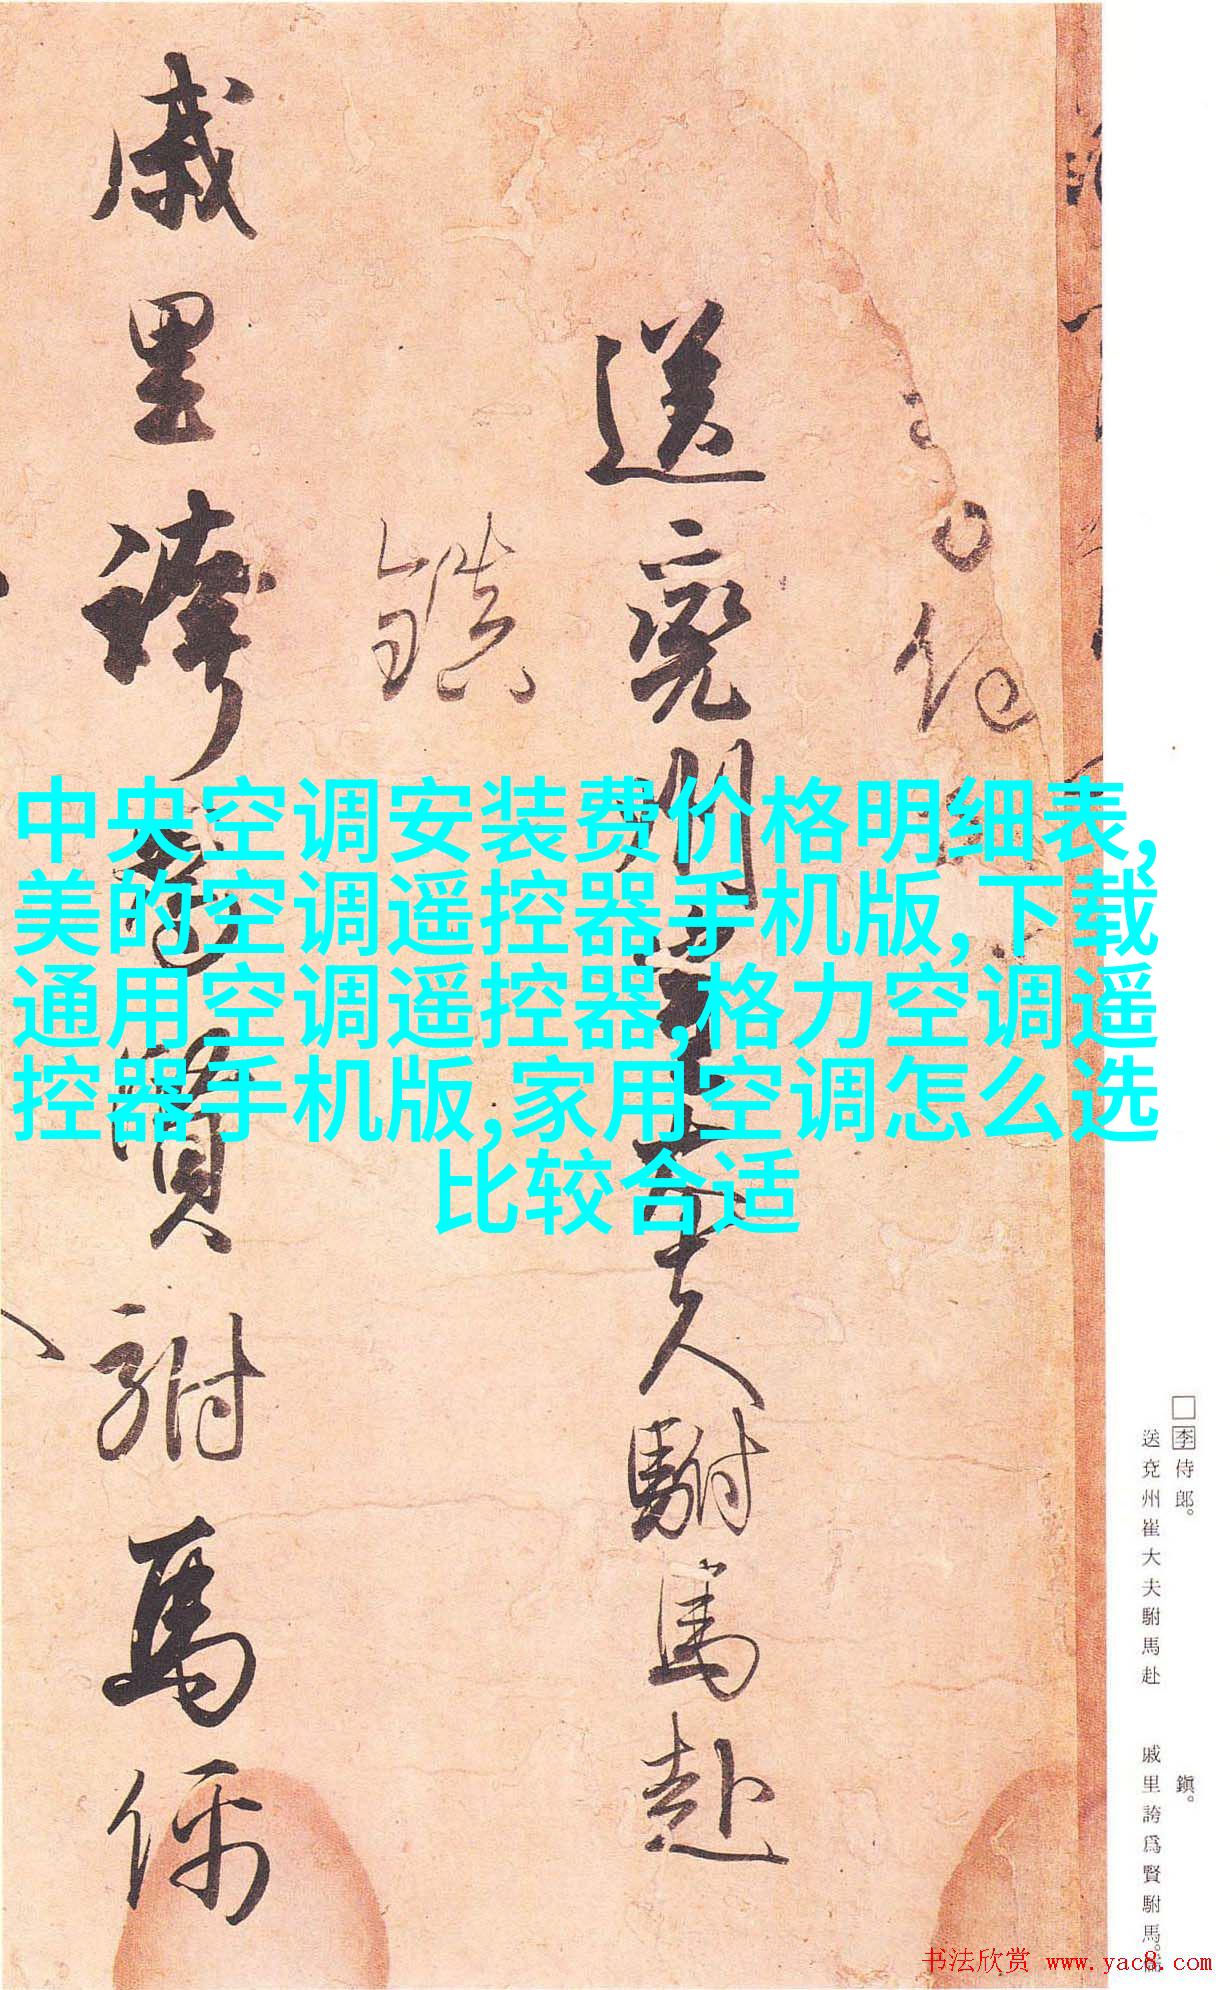 中央空调安装费价格明细表,
美的空调遥控器手机版,下载
通用空调遥控器,格力空调遥
控器手机版,家用空调怎么选
比较合适
送兖州崔大夫駙馬赴
鎮
戚里誇為賢駙馬儒
□李侍郎。
送兖州崔大夫駙馬赴
鎮。
戚里誇爲賢駙馬。儒
书法欣赏 www.yac8.com